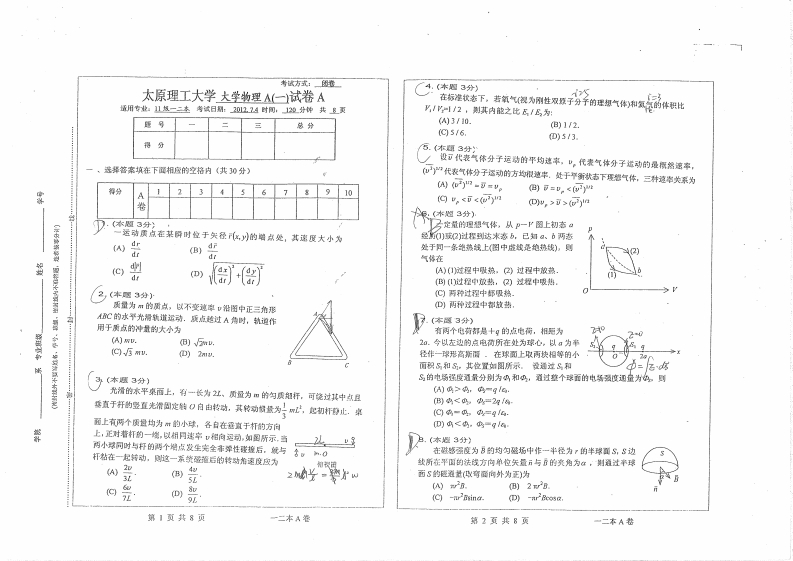 考试方式： 闭卷
太原理工大学 大学物理 A(一)试卷 A
适用专业：11级一二本 考试日期：2012.7.4 时间：120 分钟 共 8 页
题 号 一 二 三 总 分
得 分
一 、选择答案填在下面相应的空格内（共30分）
得分 A卷 1 2 3 4 5 6 7 8 9 10
1.(本题 3分)
一运动质点在某瞬时位于矢径 r̄(x,y)的端点处, 其速度大小为
(A) dr/dt (B) dr̄/dt
(C) d|r̄|/dt (D) √((dx/dt)²+(dy/dt)²)
2.(本题 3分)
质量为 m 的质点，以不变速率 v 沿图中正三角形
ABC 的水平光滑轨道运动．质点越过 A 角时，轨道作
用于质点的冲量的大小为
(A) mv. (B) √2mv.
(C) √3 mv. (D) 2mv.
A
B
C
3.(本题 3分)
光滑的水平桌面上，有一长为 2L、质量为 m 的匀质细杆，可绕过其中点且
垂直于杆的竖直光滑固定轴 O 自由转动，其转动惯量为1/3 mL²，起初杆静止．桌
面上有两个质量均为 m 的小球，各自在垂直于杆的方向
上,正对着杆的一端,以相同速率 v 相向运动,如图所示.当
两小球同时与杆的两个端点发生完全非弹性碰撞后，就与
杆粘在一起转动，则这一系统碰撞后的转动角速度应为
(A) 2v/3L. (B) 4v/5L.
(C) 6v/7L. (D) 8v/9L.
俯视图
第 1 页 共 8 页 一二本 A 卷
学院 系 专业班级 姓名 学号
4.(本题 3分)
在标准状态下，若氧气(视为刚性双原子分子的理想气体)和氦气的体积比
i=5
i=3
V₁ / V₂=1 / 2 ，则其内能之比 E₁ / E₂为:
(A) 3 / 10. (B) 1 / 2.
(C) 5 / 6. (D) 5 / 3.
5.(本题 3分)
设 v̄ 代表气体分子运动的平均速率，vₚ 代表气体分子运动的最概然速率，
(v̄²)^1/2 代表气体分子运动的方均根速率．处于平衡状态下理想气体，三种速率关系为
(A) (v̄²)^1/2 = v̄ = vₚ (B) v̄ = vₚ < (v̄²)^1/2
(C) vₚ < v̄ < (v̄²)^1/2 (D) vₚ > v̄ > (v̄²)^1/2
6.(本题 3分)
一定量的理想气体，从 p－V 图上初态 a
经历(1)或(2)过程到达末态 b，已知 a、b 两态
处于同一条绝热线上(图中虚线是绝热线)，则
气体在
(A) (1)过程中吸热，(2) 过程中放热．
(B) (1)过程中放热，(2) 过程中吸热．
(C) 两种过程中都吸热．
(D) 两种过程中都放热．
p
a
(2)
(1)
b
O
V
7.(本题 3分)
有两个电荷都是＋q 的点电荷，相距为
2a．今以左边的点电荷所在处为球心，以 a 为半
径作一球形高斯面 ．在球面上取两块相等的小
面积 S₁和 S₂，其位置如图所示． 设通过 S₁和
S₂的电场强度通量分别为Φ₁和Φ₂，通过整个球面的电场强度通量为Φₛ，则
(A) Φ₁＞Φ₂，Φₛ＝q /ε₀.
(B) Φ₁＜Φ₂，Φₛ＝2q /ε₀.
(C) Φ₁＝Φ₂，Φₛ＝q /ε₀.
(D) Φ₁＜Φ₂，Φₛ＝q /ε₀.
8.(本题 3分)
在磁感强度为 B̄ 的均匀磁场中作一半径为 r 的半球面 S，S 边
线所在平面的法线方向单位矢量 n̄ 与 B̄ 的夹角为α ，则通过半球
面 S 的磁通量(取弯面向外为正)为
(A) πr²B. (B) 2 πr²B.
(C) −πr²Bsinα. (D) −πr²Bcosα.
第 2 页 共 8 页 一二本 A 卷